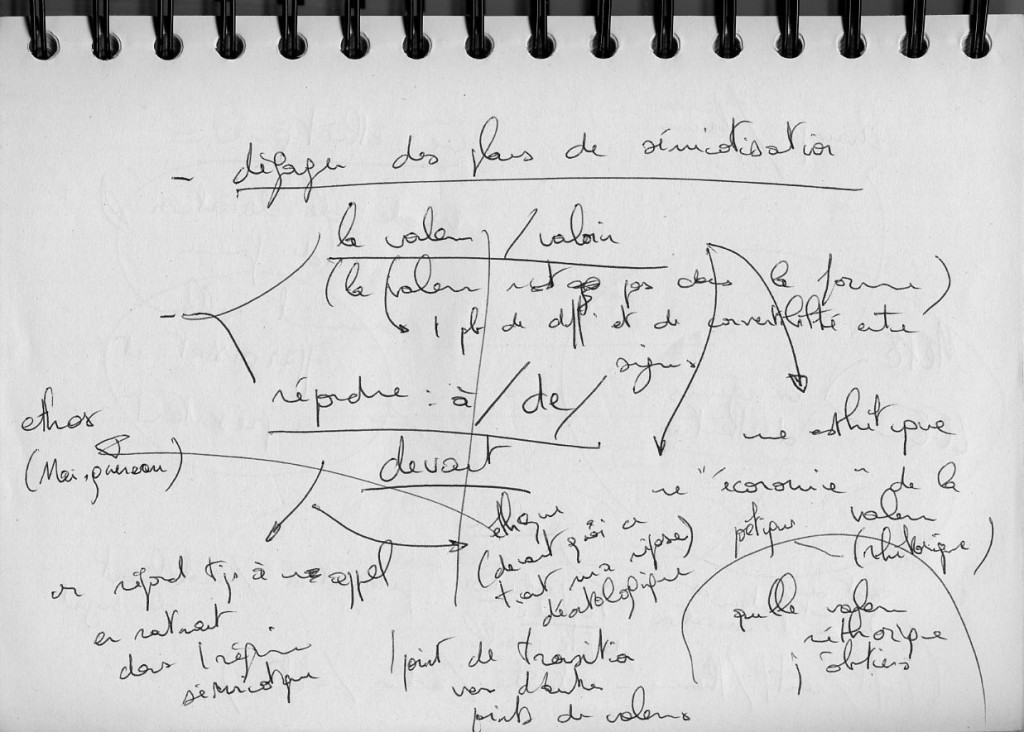 - dégager des plans de sémiotisation
la valeur / valoir
(la valeur n'est pas dans la forme)
1 pb de diff. et de convertibilité entre
signes
-
répondre : à / de /
devant
ethos
(Maingueneau)
une esthétique
une "économie" de la
valeur
(rhétorique)
poétique
éthique
(devant quoi ce
tient ma réponse)
déontologique
on répond tjs à un appel
en entrant
dans 1 régime
sémiotique
1 point de transition
vers d'autres
points de valeurs
quelle valeur
réthorique
j'obtiens